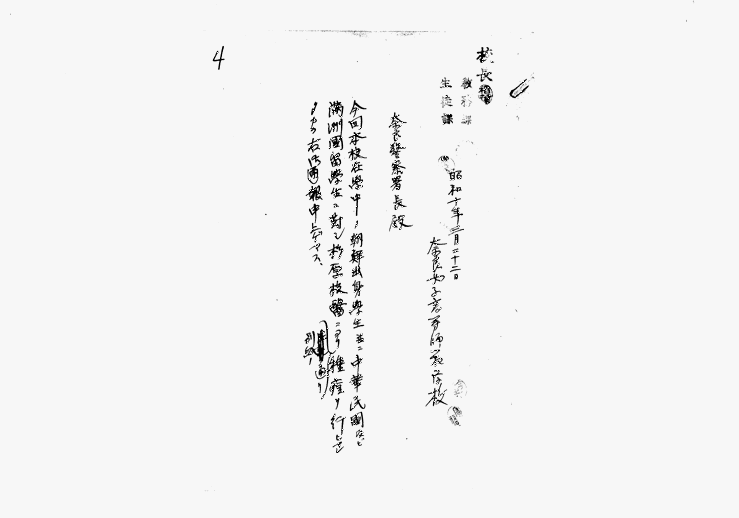 4
校長
教務課
生徒課
昭和十年三月二十二日
奈良女子高等師範学校
奈良警察署長殿
今回本校在學中ノ朝鮮出身學生並ニ中華民國及ヒ
満洲國留學生ニ對シ杉原校醫ニヨリ種痘ヲ行ヒ
右御通報申上ゲマス、
別紙ノ通リ